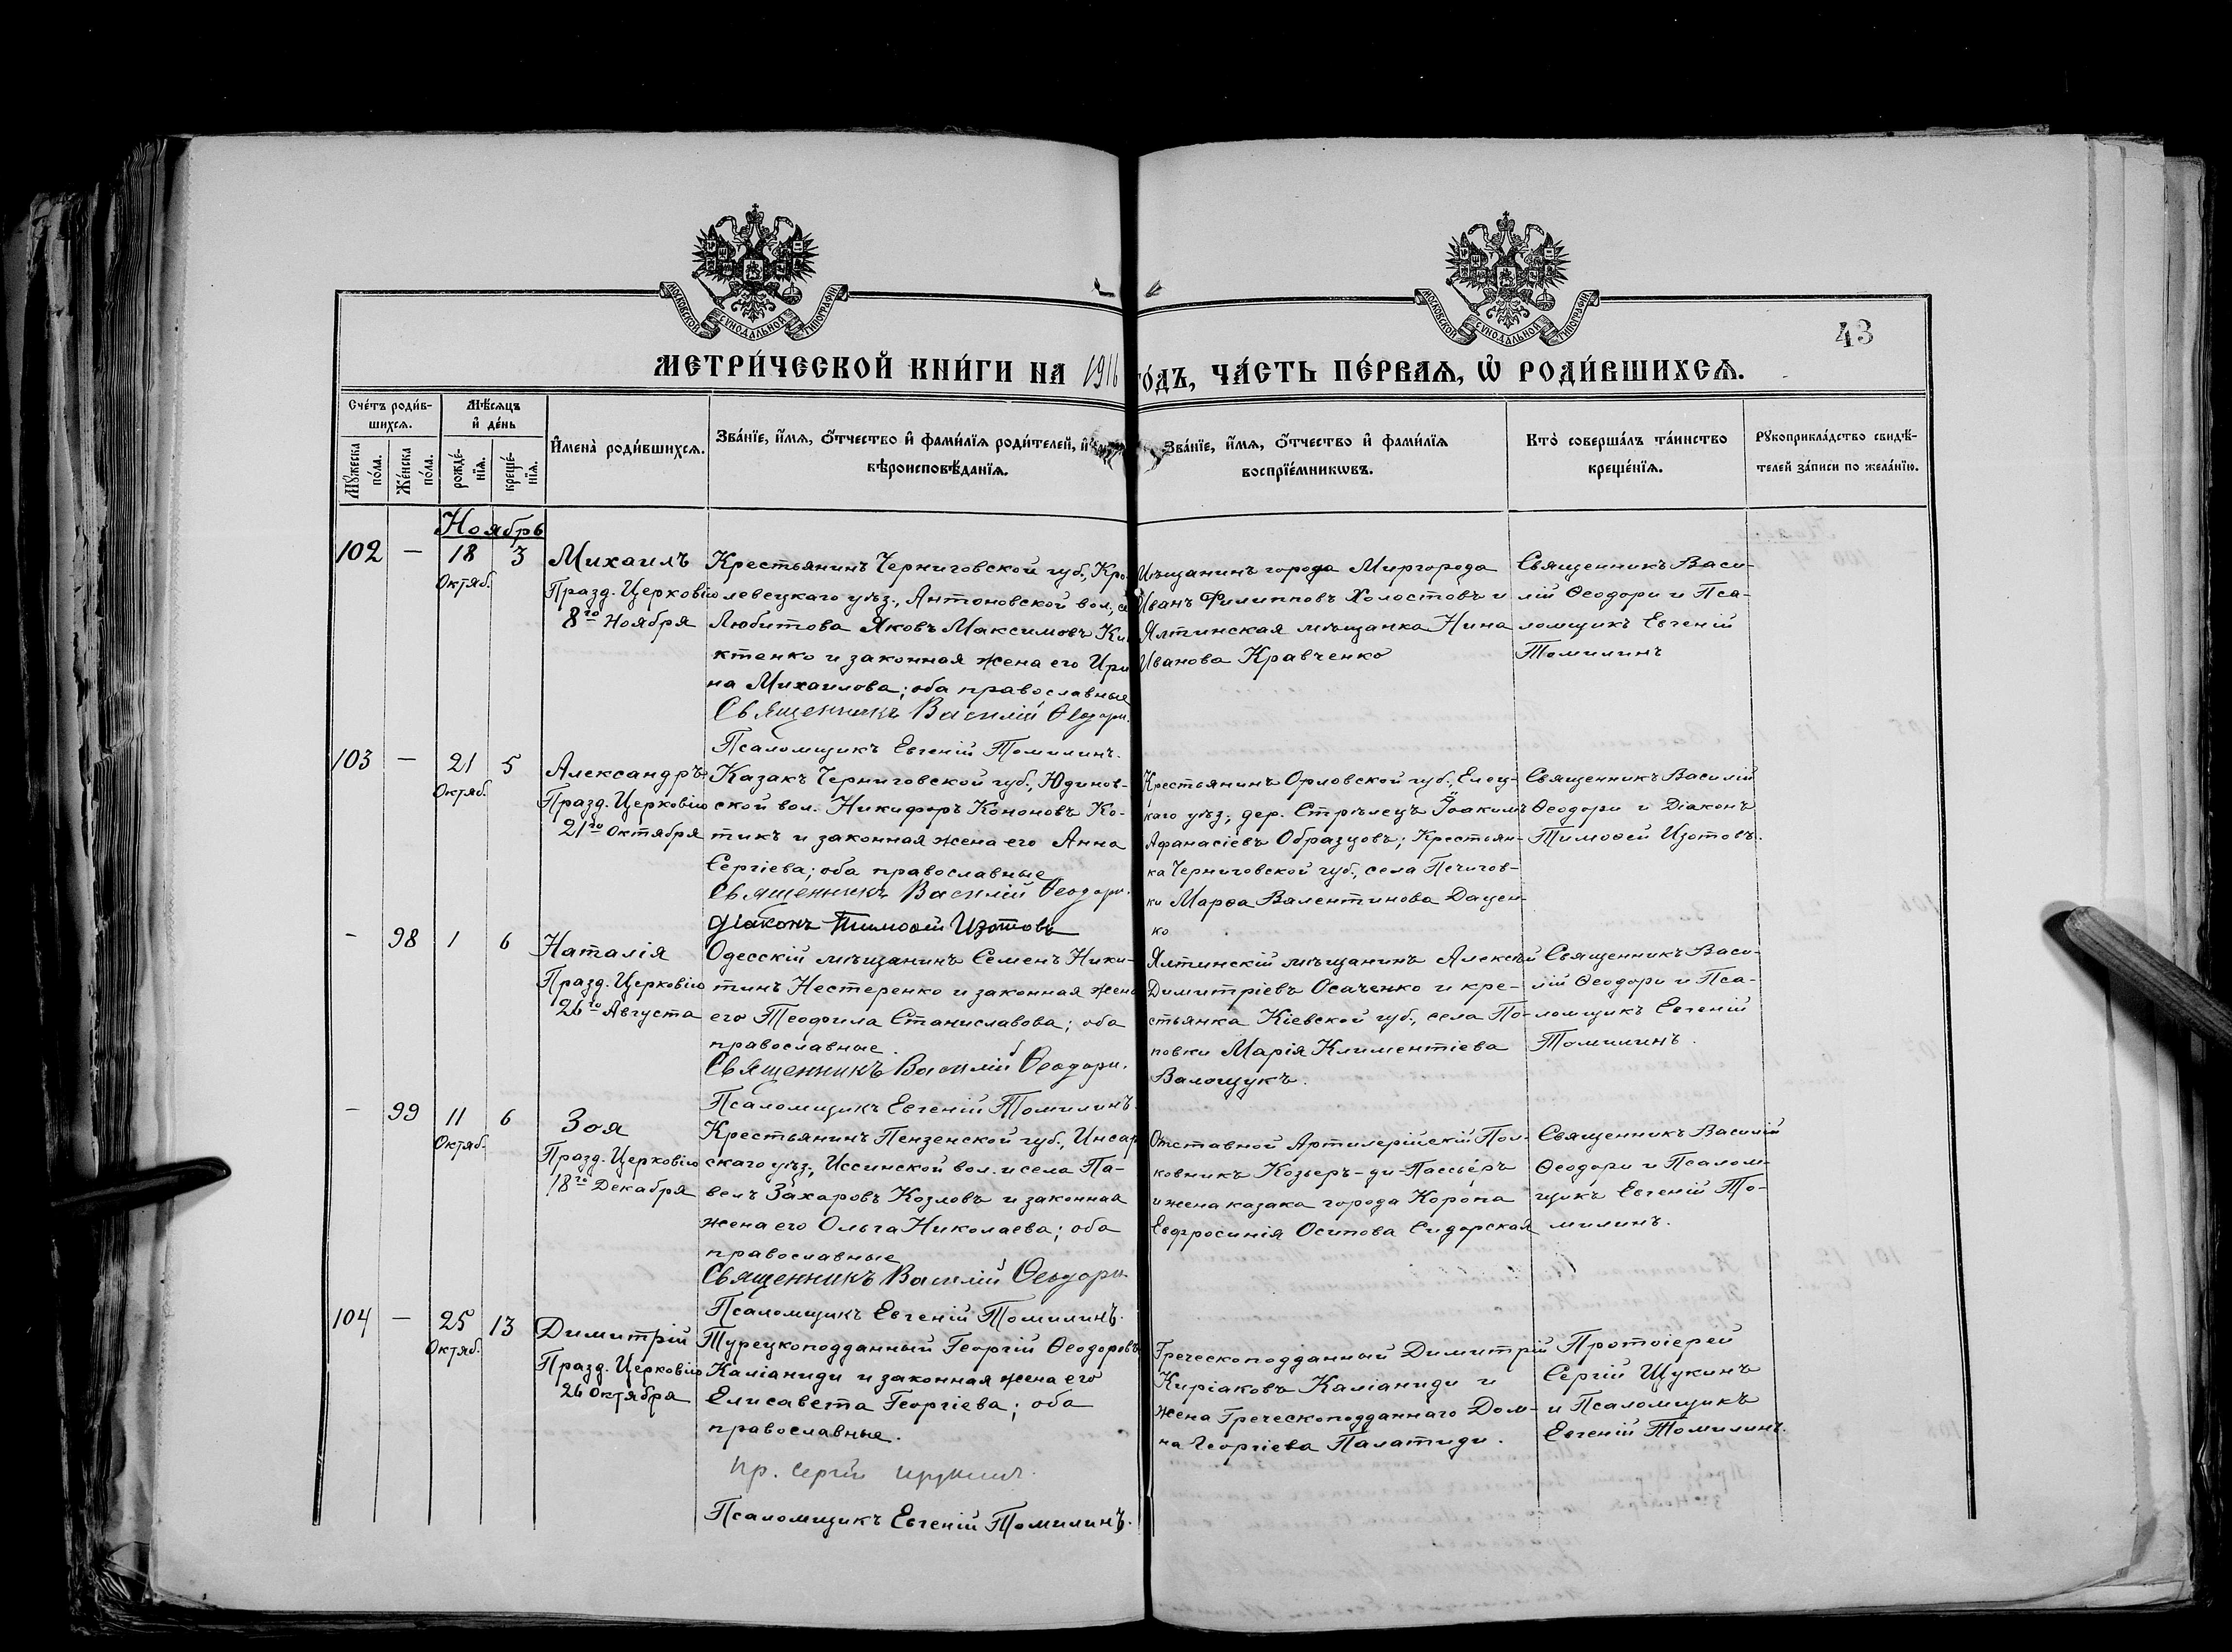 МОСКОВСКОЙ СѴНОДАЛЬНОЙ ТИПОГРАФІИ
МОСКОВСКОЙ СѴНОДАЛЬНОЙ ТИПОГРАФІИ
43
МЕТРИ́ЧЕСКОЙ КНИ́ГИ НА 1916 ГО́ДЪ, ЧА́СТЬ ПЕ́РВАѦ, Ѡ҆ РОДИ́ВШИХСѦ.
Сче́тъ роди́в-
шихсѧ.
Мꙋ́жеска
по́ла.
Же́нска
по́ла.
Мѣ́сѧцъ
и҆ де́нь
рожде́-
нїѧ.
креще́-
нїѧ.
И҆мена̀ роди́вшихсѧ.
Зва́нїе, и҆́мѧ, ѻ҆́тчество и҆ фами́лїѧ роди́телей, и҆
вѣроисповѣ́данїѧ.
Зва́нїе, и҆́мѧ, ѻ҆́тчество и҆ фами́лїѧ
воспрїе́мникѡвъ.
Кто̀ соверша́лъ та́инство
креще́нїѧ.
Рꙋкоприкла́дство свидѣ́-
телей за́писи по жела́нїю.
Ноябрь
102 — 18 3
Октяб.
Михаилъ
Празд. Церковію
8го Ноября
Крестьянинъ Черниговской губ., Кро-
левецкаго уѣз., Антоновской вол., се
Любитова Яковъ Максимовъ Ки
ктенко и законная жена его Ири
на Михаилова; оба православные
Священникъ Василій Ѳеодори.
Псаломщикъ Евгеній Томилинъ.
Мѣщанинъ города Миргорода
Иванъ Филипповъ Холостовъ и
Ялтинская мѣщанка Нина
Иванова Кравченко
Священникъ Васи-
лій Ѳеодори и Пса-
ломщикъ Евгеній
Томилинъ
103 — 21 5
Октяб.
Александръ
Празд. Церковію
21го Октября
Казакъ Черниговской губ., Юдинов-
ской вол. Никифоръ Кононовъ Ко-
тикъ и законная жена его Анна
Сергіева; оба православные
Священникъ Василій Ѳеодори.
Діаконъ Тимоѳей Изотовъ
Крестьянинъ Орловской губ., Елец-
каго уѣз., дер. Стрѣлецъ Іоакимъ
Афанасіевъ Образцовъ; Крестьян-
ка Черниговской губ., села Печигов-
ки Марѳа Валентинова Дацен
ко
Священникъ Василій
Ѳеодори и Діаконъ
Тимоѳей Изотовъ.
— 98 1 6
Наталія
Празд. Церковію
26го Августа
Одесскій мѣщанинъ Семенъ Ники-
тинъ Нестеренко и законная жена
его Теофила Станиславова; оба
православные.
Священникъ Василій Ѳеодори.
Псаломщикъ Евгеній Томилинъ.
Ялтинскій мѣщанинъ Алексѣй
Димитріевъ Осаченко и кре-
стьянка Кіевской губ., села По-
повки Марія Климентіева
Валощукъ.
Священникъ Васи-
лій Ѳеодори и Пса-
ломщикъ Евгеній
Томилинъ.
— 99 11 6
Октяб.
Зоя
Празд. Церковію
18го Декабря
Крестьянинъ Пензенской губ., Инсар
скаго уѣз., Иссинской вол. и села Па-
велъ Захаровъ Козловъ и законная
жена его Ольга Николаева; оба
православные
Священникъ Василій Ѳеодори
Псаломщикъ Евгеній Томилинъ.
Отставной Артилерійскій Пол-
ковникъ Козьеръ-ди-Пассьеръ
и жена казака города Коропа
Евфросинія Осипова Сидорская
Священникъ Василій
Ѳеодори и Псалом-
щикъ Евгеній То-
милинъ.
104 — 25 13
Октяб.
Димитрій
Празд. Церковію
26 Октября
Турецкоподданный Георгій Ѳеодоровъ
Каліаниди и законная жена его
Елисавета Георгіева; оба
православные.
Пр. Сергій Щукинъ.
Псаломщикъ Евгеній Томилинъ.
Греческоподданный Димитрій
Киріаковъ Каліаниди и
жена Греческоподданнаго Дом-
на Георгіева Палатиди.
Протоіерей
Сергій Щукинъ
и Псаломщикъ
Евгеній Томилинъ.